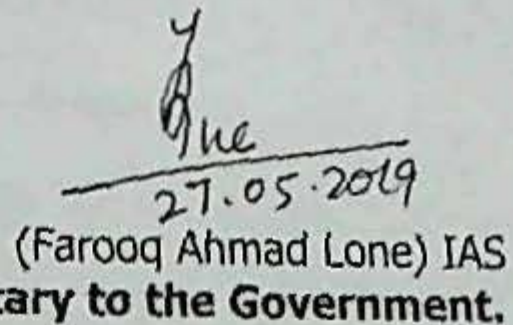 27.05.2019
(Farooq Ahmad Lone) IAS
tary to the Government.